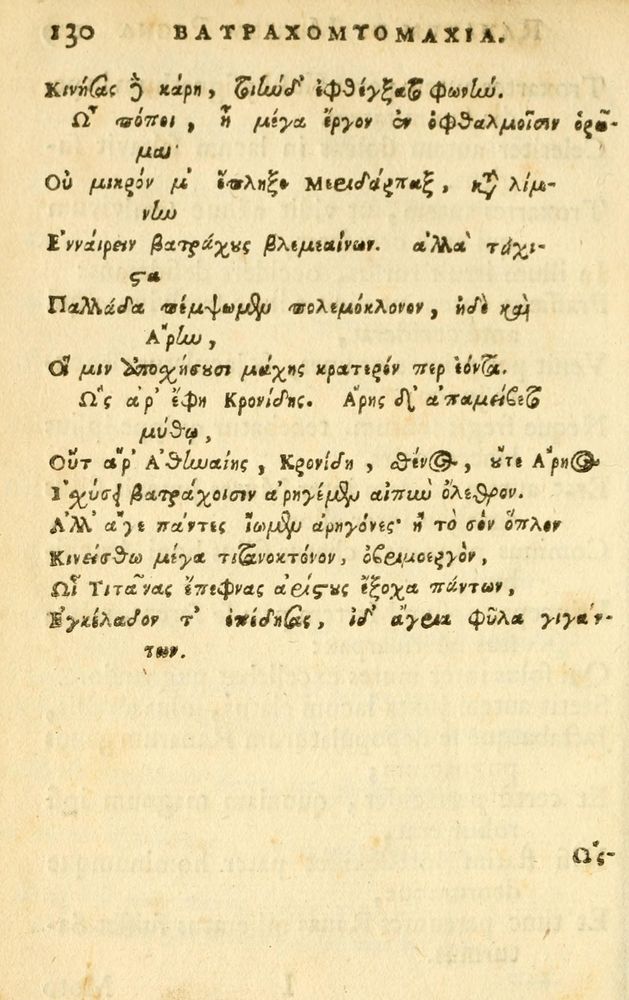 130 ΒΑΤΡΑΧΟΜΥΟΜΑΧΙΑ.
Κινήσας δὲ κάρη, τὴν δ' ἐφθέγξατο φωνήν.
Ω῏ πόποι, ἦ μέγα ἔργον ἐν ὀφθαλμοῖσιν ὁρῶ-
μαι·
Οὐ μικρόν μ' ἔπληξε Μεριδάρπαξ, κατὰ λίμ-
νην
Ε᾿ννάιρειν βατράχους βλεμεαίνων. ἀλλὰ τάχι-
στα
Παλλάδα πέμψωμεν πολεμόκλονον, ἠδὲ καὶ
Α῎ρην,
Οἵ μιν ἀποσχήσουσι μάχης κρατερόν περ ἐόντα.
Ω῝ς ἀρ' ἔφη Κρονίδης. Α῎ρης δ' ἀπαμείβετο
μύθῳ,
Οὔτ ἂρ' Α᾿θηναίης, Κρονίδη, σθένος, οὔτε Α῎ρηος
Ι᾿χύσει βατράχοισιν ἀρηγέμεν αἰπὺν ὄλεθρον.
Α᾿λλ' ἄγε πάντες ἴωμεν ἀρηγόνες· ἢ τὸ σὸν ὅπλον
Κινείσθω μέγα τιτανοκτόνον, ὀβριμοεργὸν,
Ωἷ Τιτᾶνας ἔπεφνας ἀρίστους ἔξοχα πάντων,
Ε᾿γκέλαδον τ' ἐπέδησας, ἰδ' ἄγρια φῦλα γιγάν-
των.
Ω῝ς-